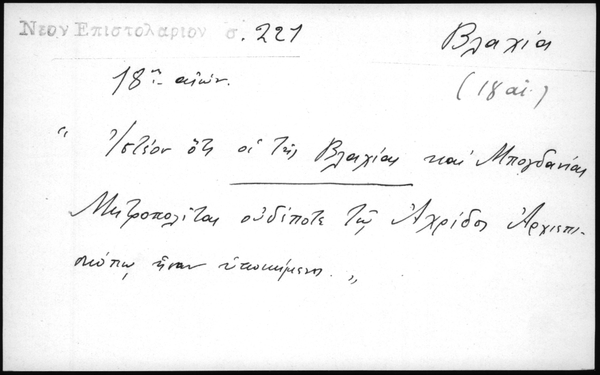 Νεον Επιστολαριον σ. 221
Βλαχία
18ος αἰών.
(18 αἰ.)
“ Ἰστέον ὅτι οἱ τῆς Βλαχίας καὶ Μπογδανίας
Μητροπολῖται οὐδέποτε τῷ Ἀχρίδος Ἀρχιεπι-
σκόπῳ ἦσαν ὑποκείμενοι. „